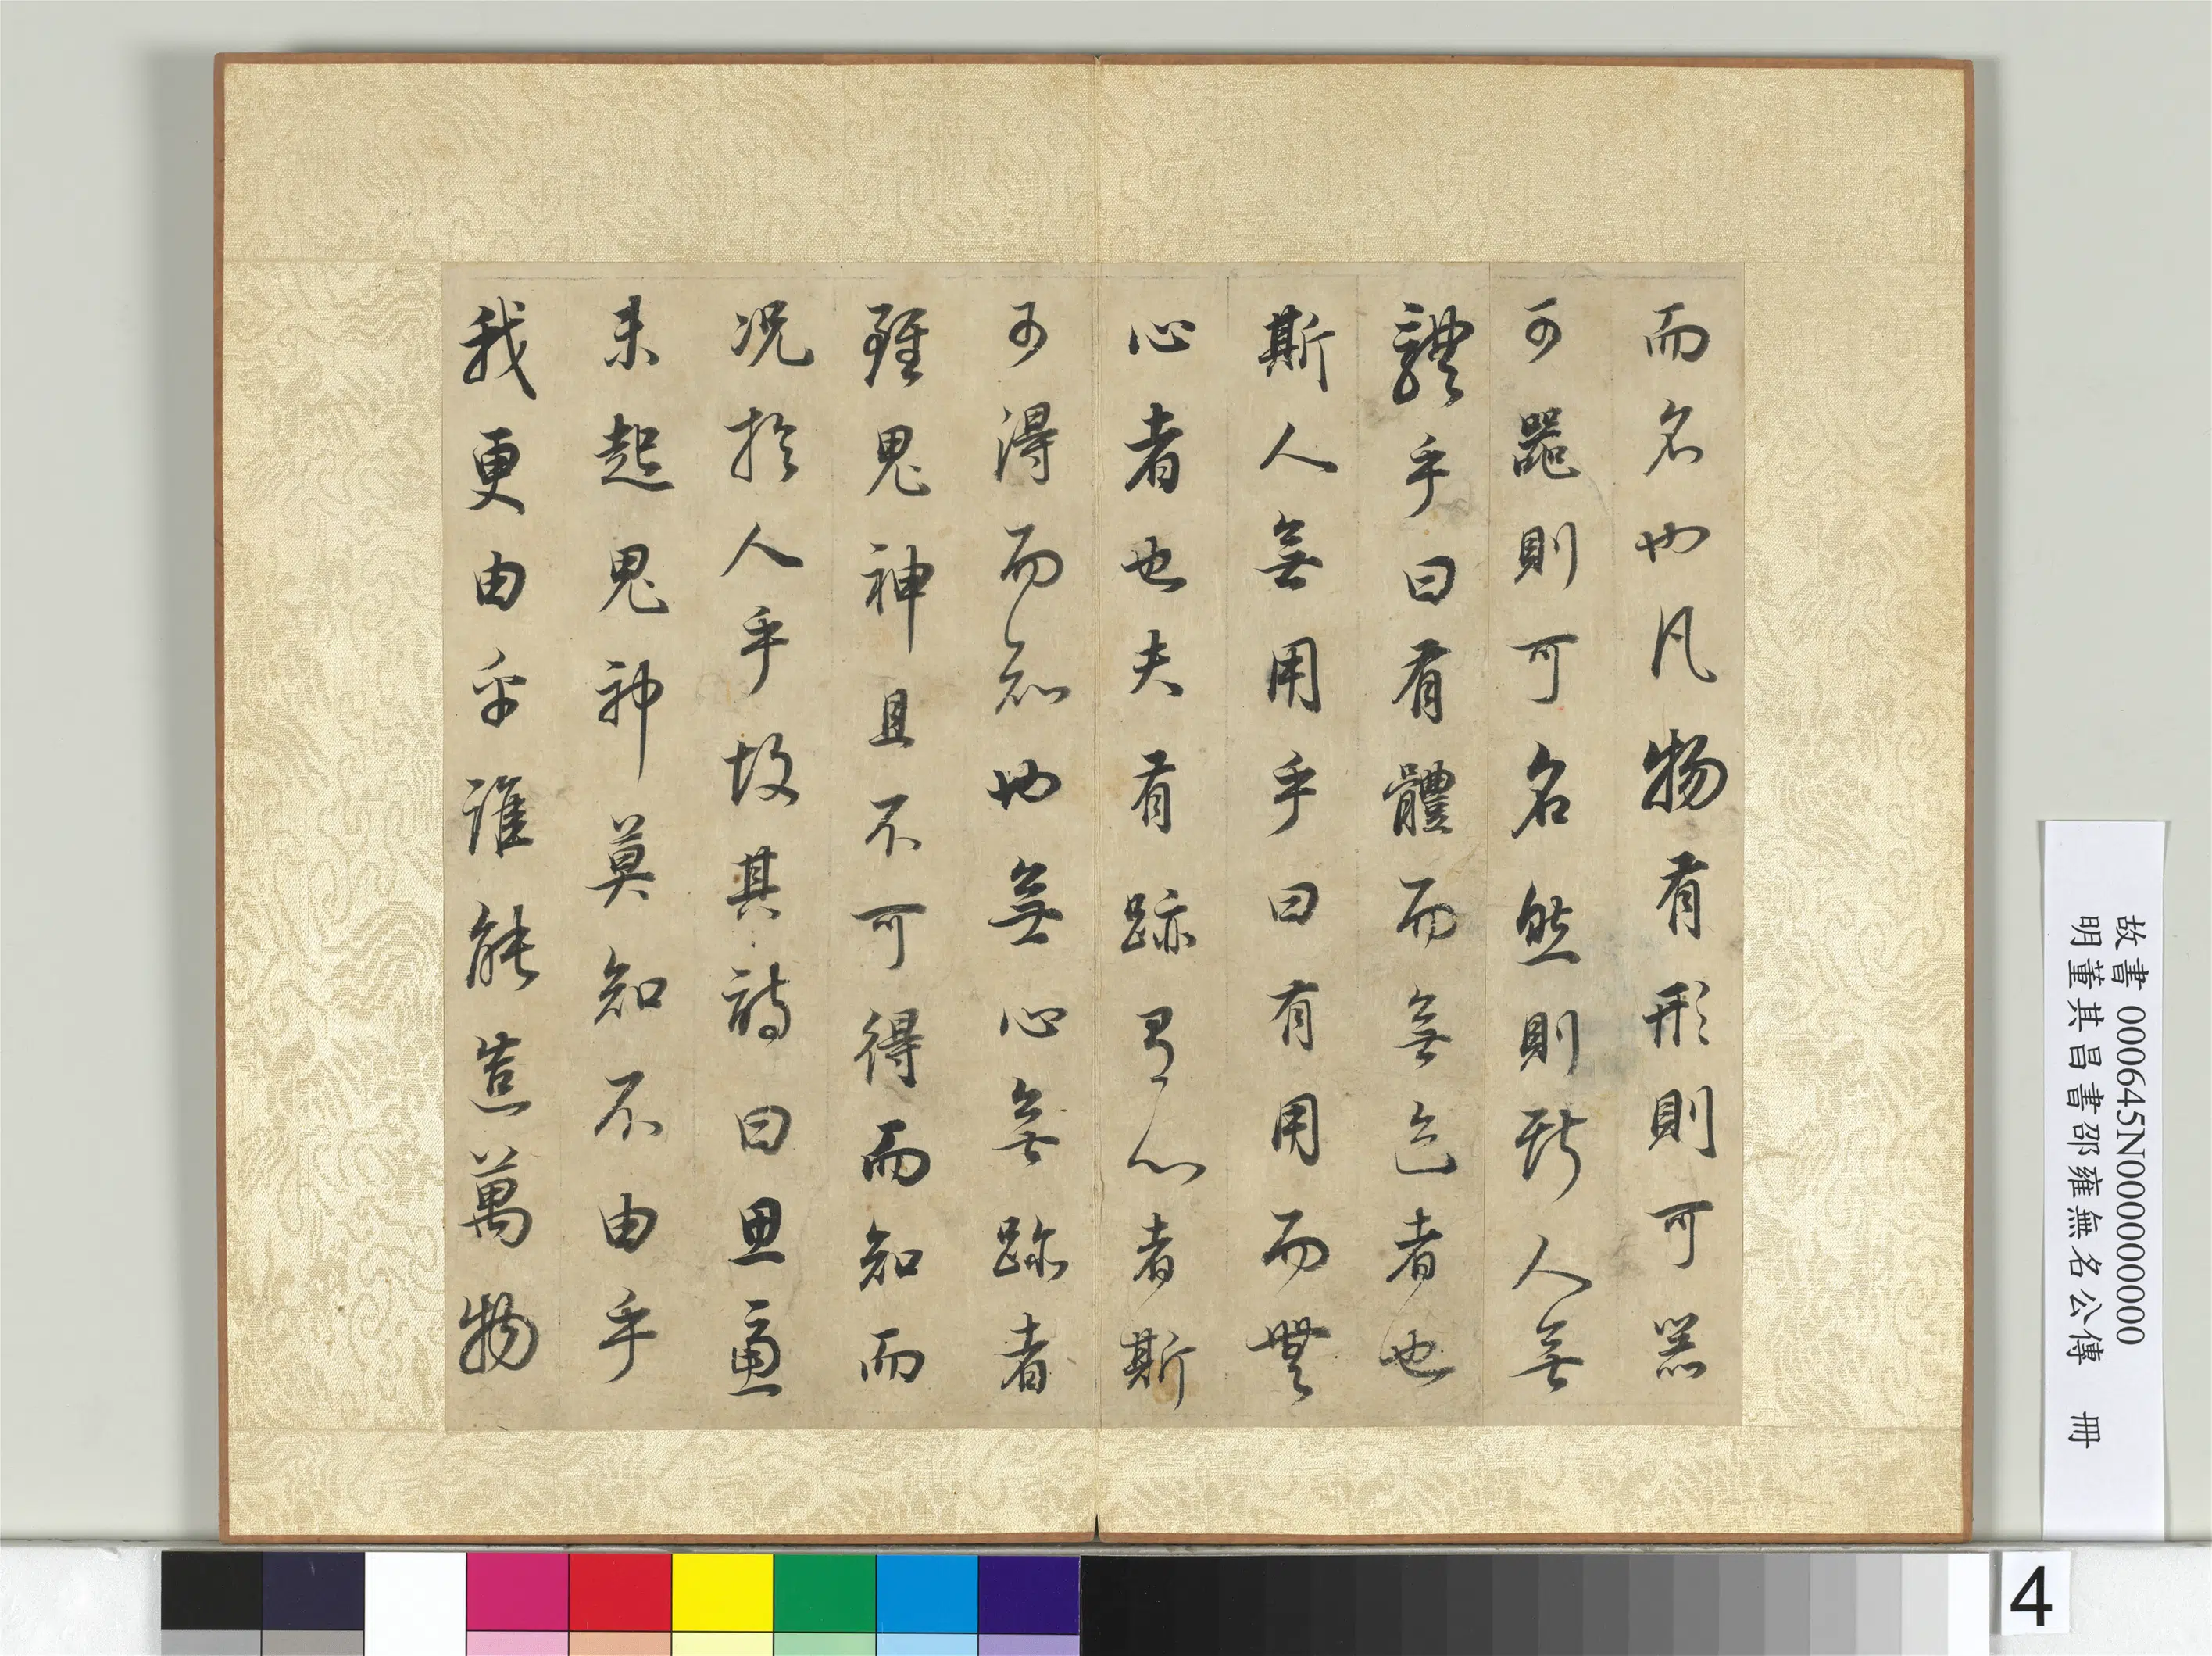 而名也凡物有形則可器
可器則可名然則斯人無
體乎曰有體而無迹者也
斯人無用乎曰有用而無
心者也夫有跡有心者斯
可得而知也無心無跡者
雖鬼神且不可得而知而
況於人乎故其詩曰思慮
未起鬼神莫知不由乎
我更由乎誰能造萬物
故書 000645N000000000
明董其昌書邵雍無名公傳 冊
4